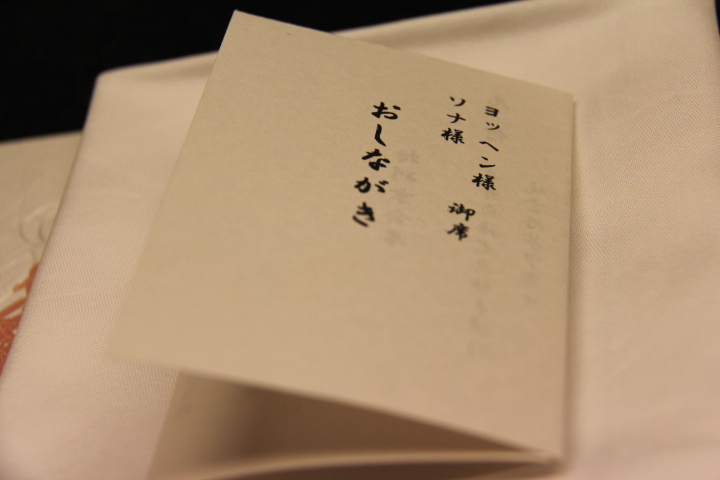 ヨッヘン様
ソナ様 御席
おしながき